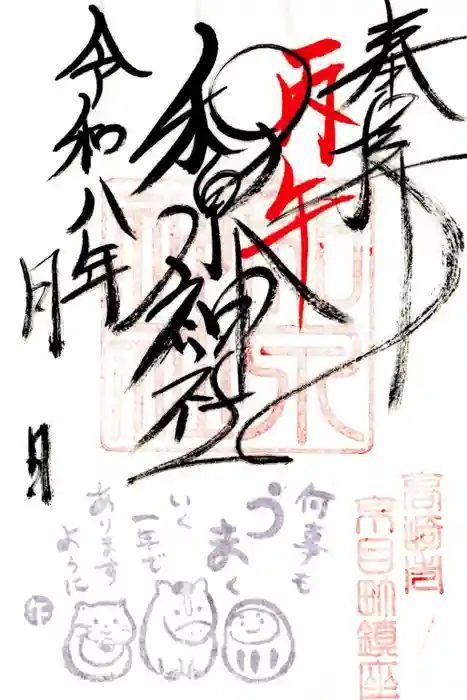 奉拝
丙午
和泉神社
令和八年
月
日
高崎市
京目町鎮座
何事も
うまく
いく
一年で
あります
ように
午